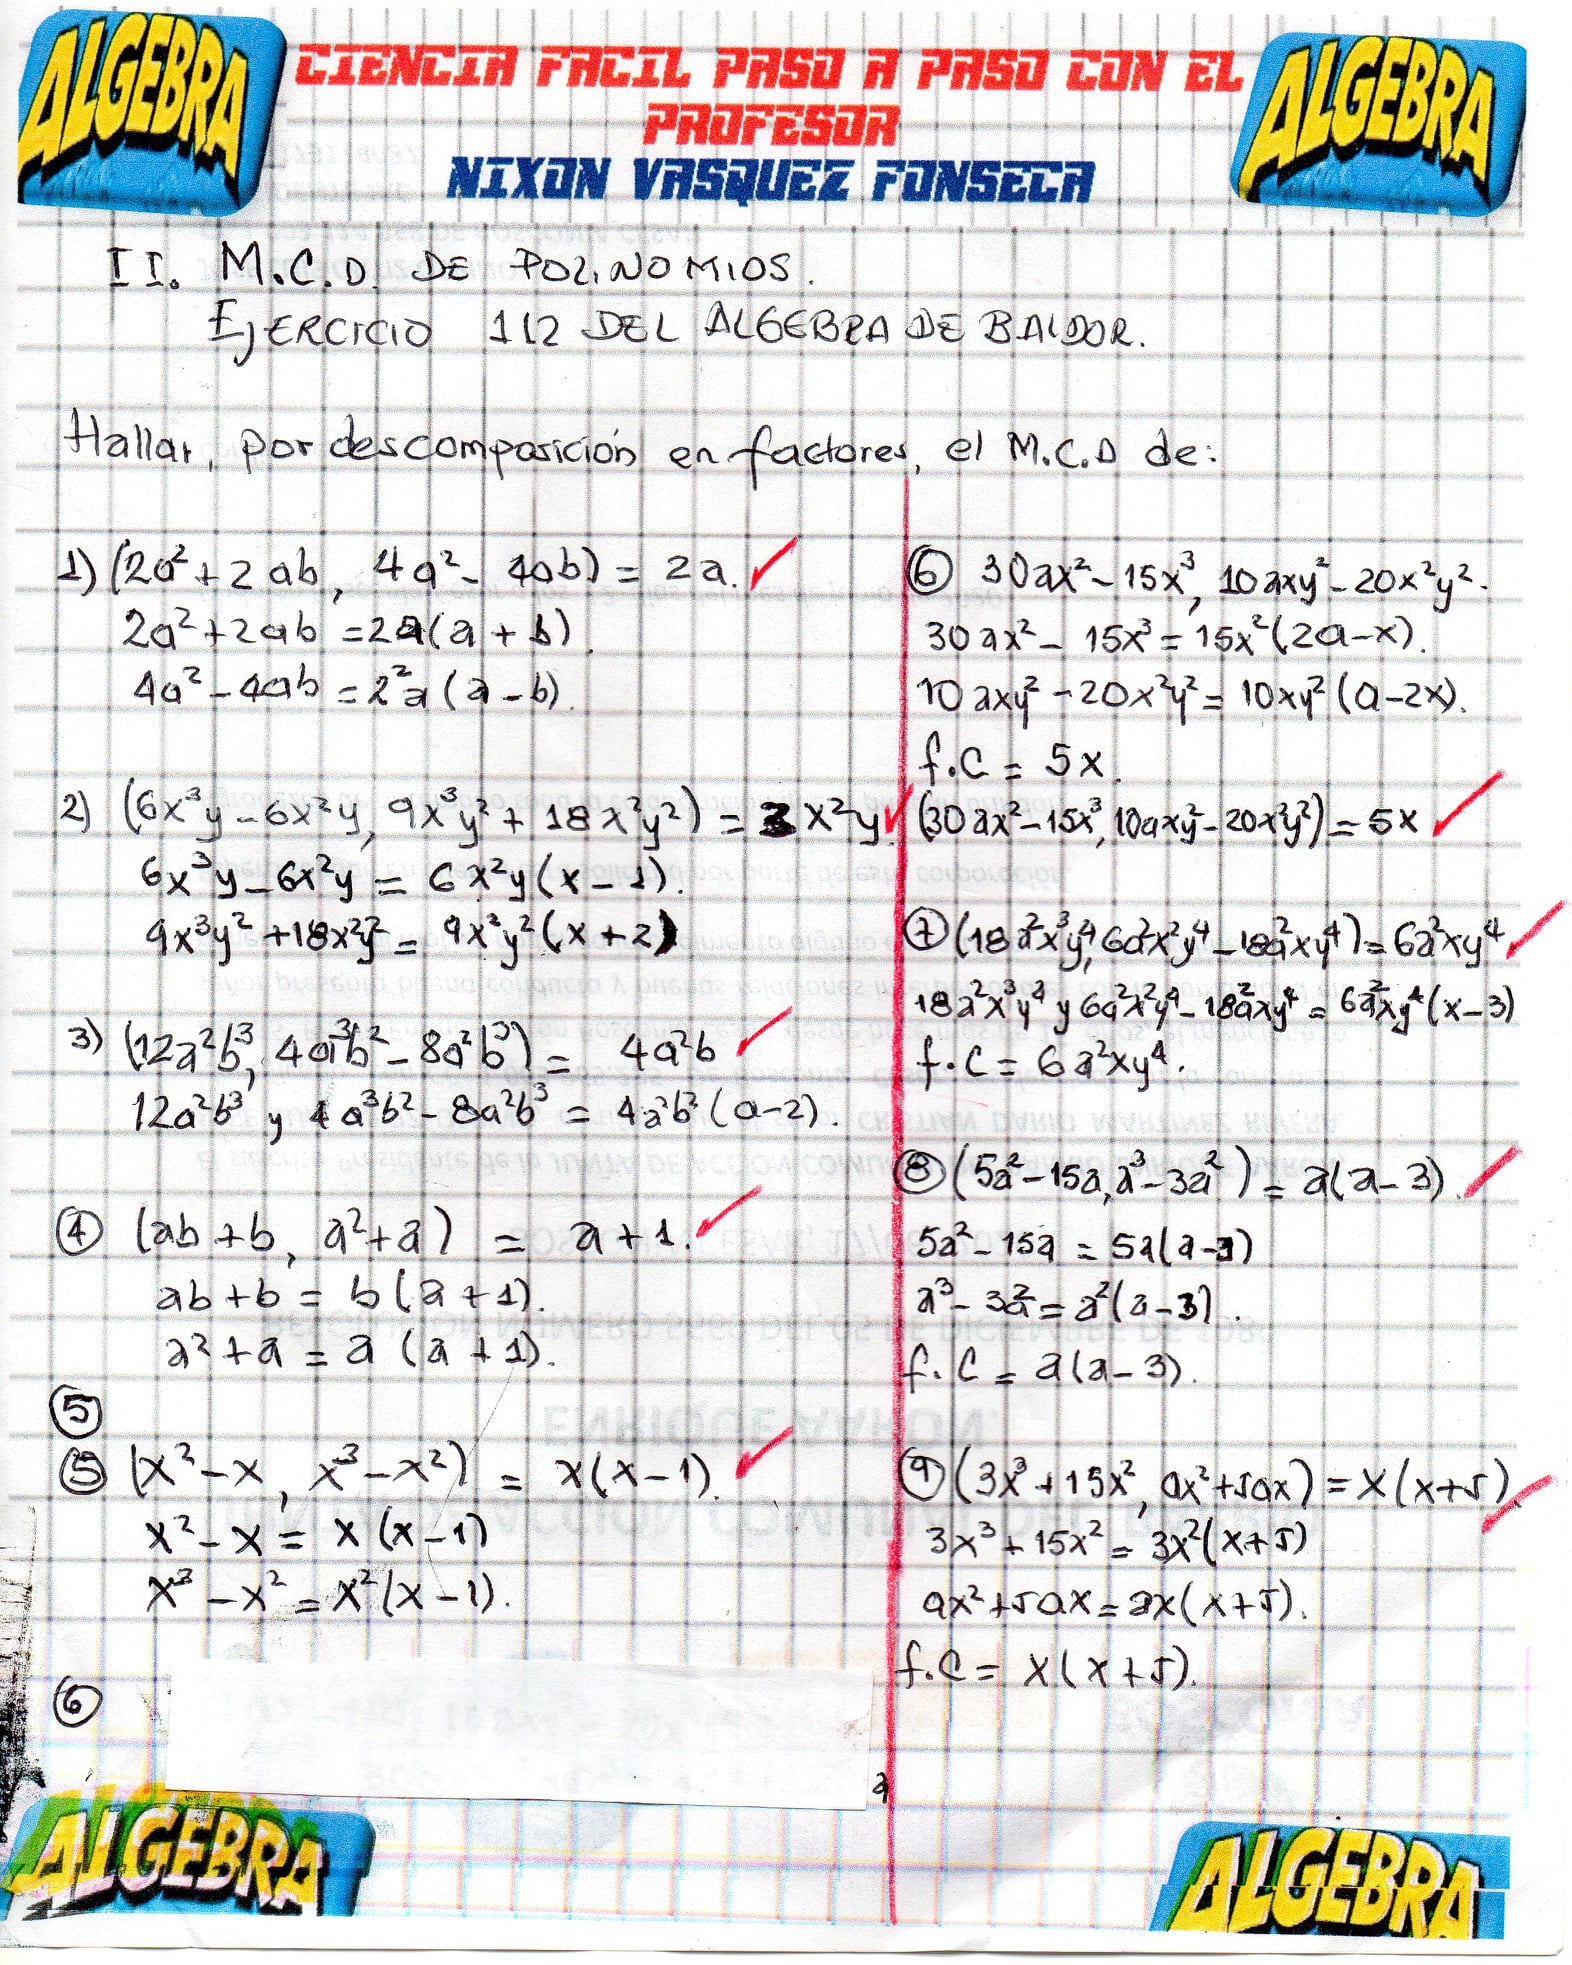 ALGEBRA
CIENCIA FACIL PASO A PASO CON EL
PROFESOR
NIXON VASQUEZ FONSECA
ALGEBRA
II. M.C.D. DE POLINOMIOS.
EJERCICIO 112 DEL ALGEBRA DE BALDOR.
Hallar, por descomposición en factores, el M.C.D de:
1) (2a²+2ab, 4a²-4ab) = 2a. ✓
2a²+2ab = 2a(a+b).
4a²-4ab = 2²a(a-b).
2) (6x³y-6x²y, 9x³y²+18x²y²) = 3x²y. ✓
6x³y-6x²y = 6x²y(x-1).
9x³y²+18x²y² = 9x²y²(x+2)
3) (12a²b³, 4a³b²-8a²b³) = 4a²b ✓
12a²b³ y 4a³b²-8a²b³ = 4a²b²(a-2).
④ (ab+b, a²+a) = a+1. ✓
ab+b = b(a+1).
a²+a = a(a+1).
⑤
⑤ (x²-x, x³-x²) = x(x-1). ✓
x²-x = x(x-1)
x³-x² = x²(x-1).
⑥
⑥ 30ax²-15x³, 10axy²-20x²y².
30ax²-15x³ = 15x²(2a-x).
10axy²-20x²y² = 10xy²(a-2x).
f.C = 5x.
(30ax²-15x³, 10axy²-20x²y²) = 5x ✓
⑦ (18a²x³y⁴, 6a²x²y⁴-18a²xy⁴) = 6a²xy⁴ ✓
18a²x³y⁴ y 6a²x²y⁴-18a²xy⁴ = 6a²xy⁴(x-3)
f.C = 6a²xy⁴.
⑧ (5a²-15a, a³-3a²) = a(a-3). ✓
5a²-15a = 5a(a-3)
a³-3a² = a²(a-3).
f.C = a(a-3).
⑨ (3x³+15x², ax²+5ax) = x(x+5). ✓
3x³+15x² = 3x²(x+5)
ax²+5ax = ax(x+5).
f.C = x(x+5).
ALGEBRA
ALGEBRA